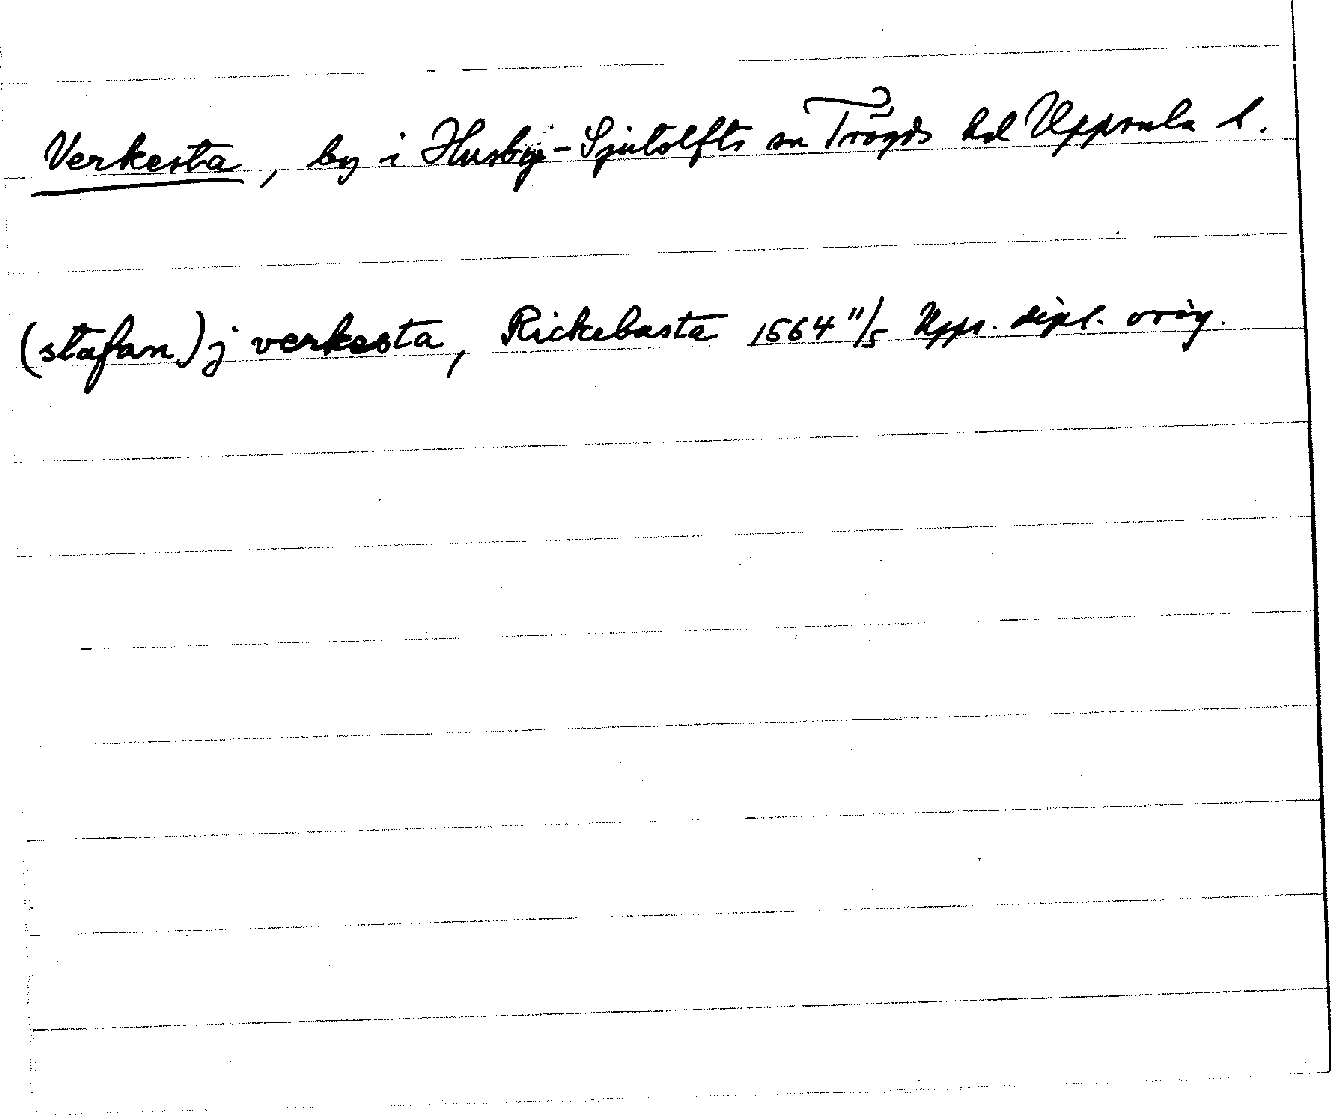 Verkesta, by i Husby-Sjutolfts sn Trögds hd Uppsala l.
(stafan) j verkesta, Rickebasta 1564 11/5 Upps. dipl. orig.